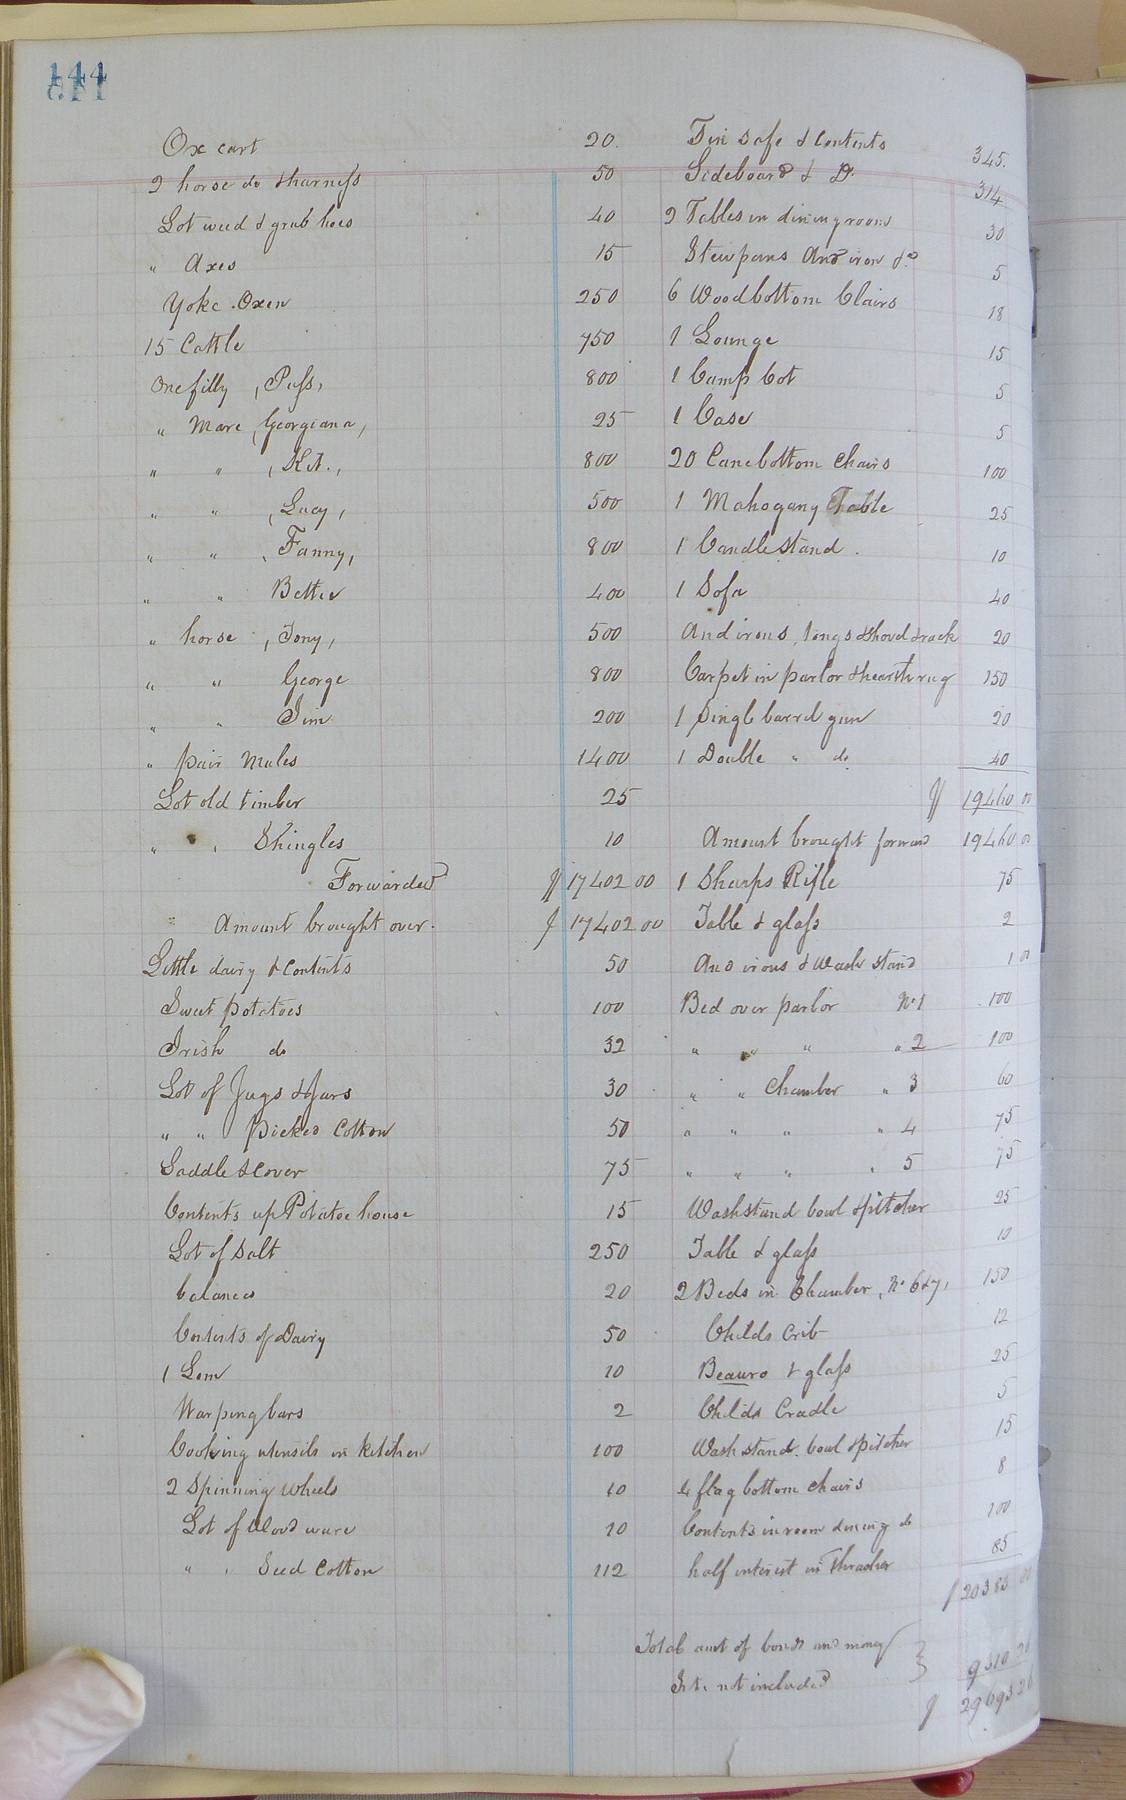 144
Ox cart 20.
2 horse do & harness 50
Lot weed & grub hoes 40
" Axes 15
Yoke Oxen 250
15 Cattle 750
One filly "Puss" 800
" Mare "Georgiana" 25
" " "Kit." 800
" " "Lucy" 500
" " "Fanny" 800
" " Bettie 400
" horse "Tony" 500
" " George 800
" " Jim 200
" pair Mules 1400
Lot old timber 25
" " Shingles 10
Forwarded $17402 00
Amount brought over. $17402 00
Little dairy & Contents 50
Sweet potatoes 100
Irish do 32
Lot of Jugs & Jars 30
" " picked Cotton 50
Saddle & Cover 75
Contents up Potatoe house 15
Lot of Salt 250
balances 20
Contents of Dairy 50
1 Lom 10
Warping bars 2
Cooking utensils in kitchen 100
2 Spinning Wheels 10
Lot of Wood ware 10
" " Seed Cotton 112
Tin Safe & Contents 345.
Sideboard & Do. 314
2 Tables in dining room 30
Stewpans And iron &c 5
6 Woodbottom Chairs 18
1 Lounge 15
1 Camp Cot 5
1 Case 5
20 Canebottom Chairs 100
1 Mahogany Table 25
1 Candle Stand. 10
1 Sofa 40
Andirons, tongs & shovel & rack 20
Carpet in parlor & hearth rug 150
1 Single barrel gun 20
1 Double " do 40
$ 19460 00
Amount brought forward 19460 00
1 Sharps Rifle 75
Table & glass 2
And irons & Wash stand 1 00
Bed over parlor No 1 100
" " " " 2 100
" " Chamber " 3 60
" " " " 4 75
" " " " 5 75
Washstand bowl & pitcher 25
Table & glass 10
2 Beds in Chamber, No 6 & 7, 150
Childs Crib 12
Beauro & glass 25
Childs Cradle 5
Wash stand bowl & pitcher 15
4 flag bottom chairs 8
Contents in room dining do 100
half interest in Thrasher 85
$20383 00
Total amt of bonds and money
Int. not included } 9310 26
$ 29693 26